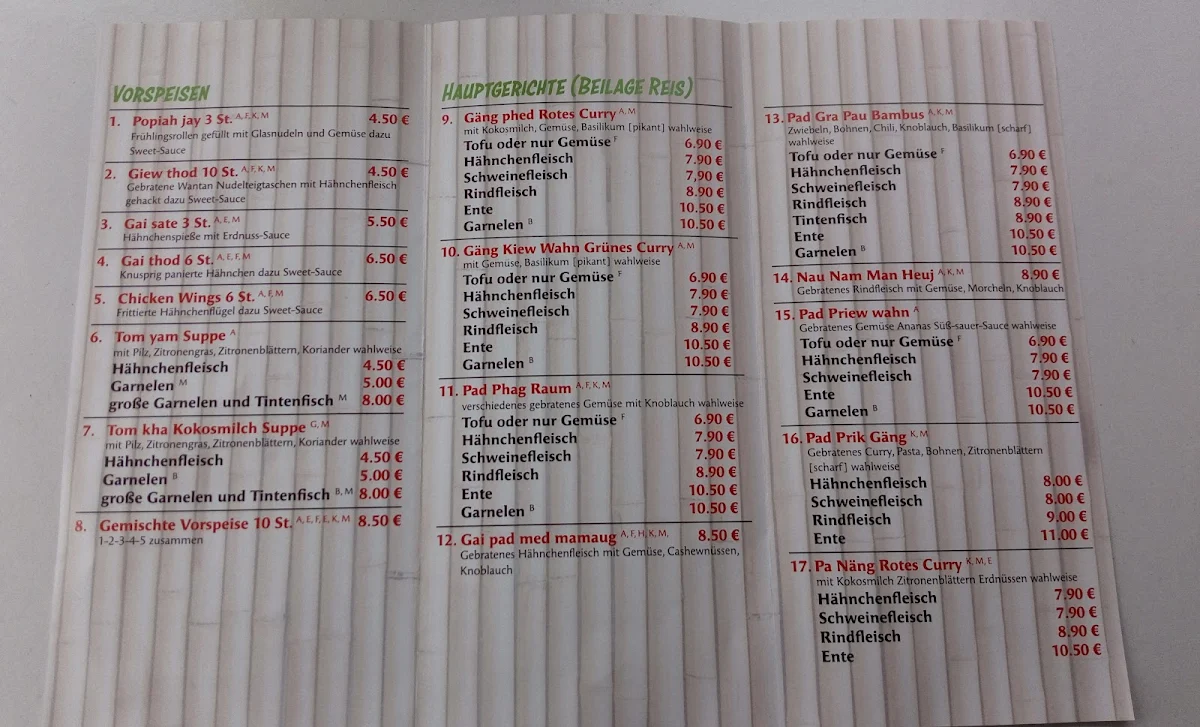 VORSPEISEN
1. Popiah jay 3 St. A, F, K, M 4.50 €
Frühlingsrollen gefüllt mit Glasnudeln und Gemüse dazu
Sweet-Sauce
2. Giew thod 10 St. A, F, K, M 4.50 €
Gebratene Wantan Nudelteigtaschen mit Hähnchenfleisch
gehackt dazu Sweet-Sauce
3. Gai sate 3 St. A, E, M 5.50 €
Hähnchenspieße mit Erdnuss-Sauce
4. Gai thod 6 St. A, E, F, M 6.50 €
Knusprig panierte Hähnchen dazu Sweet-Sauce
5. Chicken Wings 6 St. A, F, M 6.50 €
Frittierte Hähnchenflügel dazu Sweet-Sauce
6. Tom yam Suppe A
mit Pilz, Zitronengras, Zitronenblättern, Koriander wahlweise
Hähnchenfleisch 4.50 €
Garnelen M 5.00 €
große Garnelen und Tintenfisch M 8.00 €
7. Tom kha Kokosmilch Suppe G, M
mit Pilz, Zitronengras, Zitronenblättern, Koriander wahlweise
Hähnchenfleisch 4.50 €
Garnelen B 5.00 €
große Garnelen und Tintenfisch B, M 8.00 €
8. Gemischte Vorspeise 10 St. A, E, F, E, K, M 8.50 €
1-2-3-4-5 zusammen
HAUPTGERICHTE (BEILAGE REIS)
9. Gäng phed Rotes Curry A, M
mit Kokosmilch, Gemüse, Basilikum [pikant] wahlweise
Tofu oder nur Gemüse F 6.90 €
Hähnchenfleisch 7.90 €
Schweinefleisch 7,90 €
Rindfleisch 8.90 €
Ente 10.50 €
Garnelen B 10.50 €
10. Gäng Kiew Wahn Grünes Curry A, M
mit Gemüse, Basilikum [pikant] wahlweise
Tofu oder nur Gemüse F 6.90 €
Hähnchenfleisch 7.90 €
Schweinefleisch 7.90 €
Rindfleisch 8.90 €
Ente 10.50 €
Garnelen B 10.50 €
11. Pad Phag Raum A, F, K, M
verschiedenes gebratenes Gemüse mit Knoblauch wahlweise
Tofu oder nur Gemüse F 6.90 €
Hähnchenfleisch 7.90 €
Schweinefleisch 7.90 €
Rindfleisch 8.90 €
Ente 10.50 €
Garnelen B 10.50 €
12. Gai pad med mamaug A, F, H, K, M, 8.50 €
Gebratenes Hähnchenfleisch mit Gemüse, Cashewnüssen,
Knoblauch
13. Pad Gra Pau Bambus A, K, M
Zwiebeln, Bohnen, Chili, Knoblauch, Basilikum [scharf]
wahlweise
Tofu oder nur Gemüse F 6.90 €
Hähnchenfleisch 7.90 €
Schweinefleisch 7.90 €
Rindfleisch 8.90 €
Tintenfisch 8.90 €
Ente 10.50 €
Garnelen B 10.50 €
14. Nau Nam Man Heuj A, K, M 8.90 €
Gebratenes Rindfleisch mit Gemüse, Morcheln, Knoblauch
15. Pad Priew wahn A
Gebratenes Gemüse Ananas Süß-sauer-Sauce wahlweise
Tofu oder nur Gemüse F 6.90 €
Hähnchenfleisch 7.90 €
Schweinefleisch 7.90 €
Ente 10.50 €
Garnelen B 10.50 €
16. Pad Prik Gäng K, M
Gebratenes Curry, Pasta, Bohnen, Zitronenblättern
[scharf] wahlweise
Hähnchenfleisch 8,00 €
Schweinefleisch 8.00 €
Rindfleisch 9.00 €
Ente 11.00 €
17. Pa Näng Rotes Curry K, M, E
mit Kokosmilch Zitronenblättern Erdnüssen wahlweise
Hähnchenfleisch 7.90 €
Schweinefleisch 7.90 €
Rindfleisch 8.90 €
Ente 10.50 €